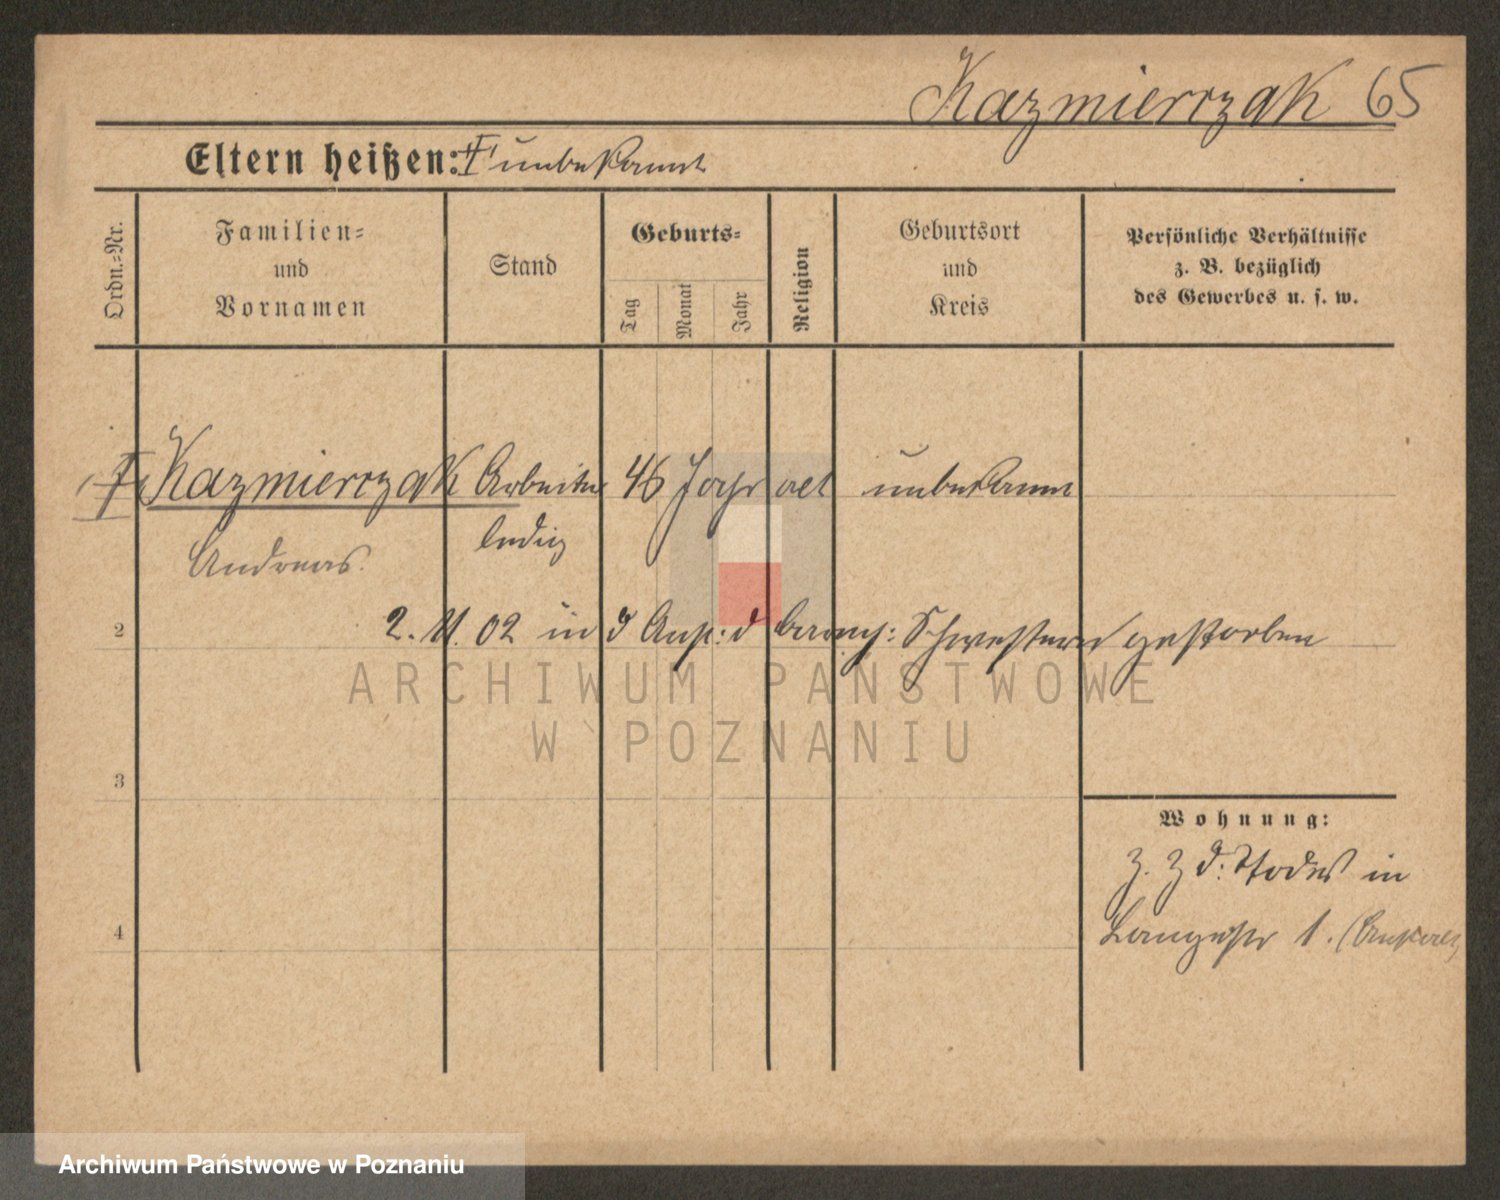 Kazmierczak 65
Eltern heißen: unbekannt
Ordn.-Nr.
Familien-
und
Vornamen
Stand
Geburts-
Tag
Monat
Jahr
Religion
Geburtsort
und
Kreis
Persönliche Verhältnisse
z. B. bezüglich
des Gewerbes u. s. w.
Kazmierczak Arbeiter 46 Jahr alt unbekannt
ledig
Andreas.
2
2. 11. 02 in d Anst: d barmh: Schwestern gestorben
ARCHIWUM PAŃSTWOWE
W POZNANIU
3
Wohnung:
z. Z d: Todes in
4
Langestr 1.
Archiwum Państwowe w Poznaniu